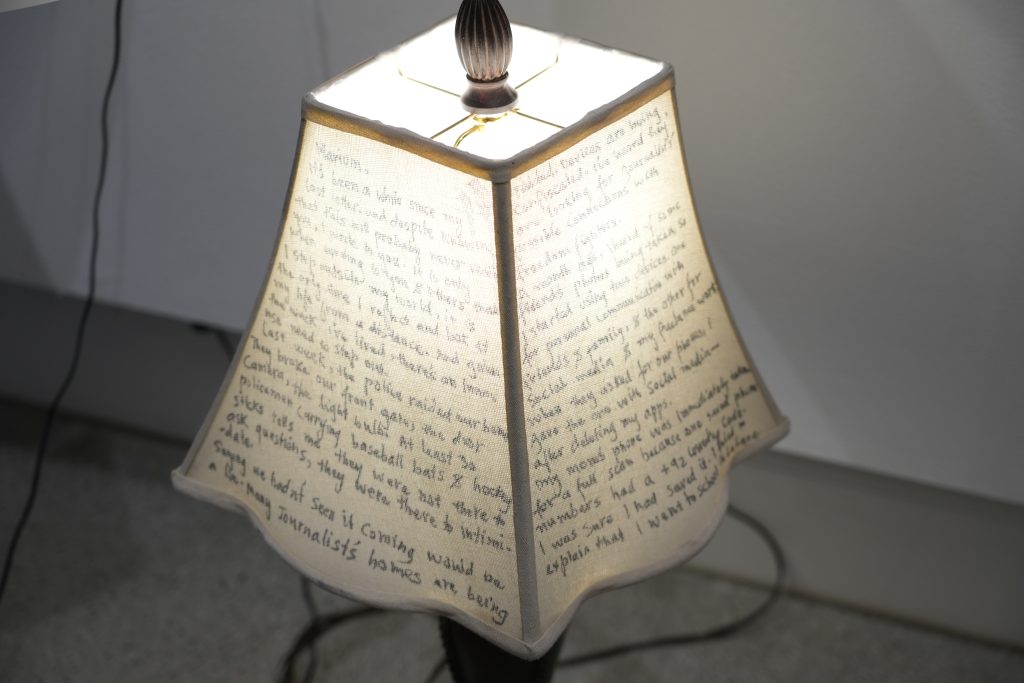 Marium,
It's been a while since my
last letter, and despite knowing
what this will probably never reach
you, I wrote to you. It is only
when writing to you & others
I step outside my world, it is
the only time I reflect and look at
my life from a distance. And given
how I've lived, there's an
need to step out.
Last week, the police raided our home.
They broke our front gate, the door
Camera, the light bulbs. At least 30
policemen carrying baseball bats & hockey
sticks tells me they were not there to
ask questions, they were there to intimi-
-date.
Saying we hadn't seen it coming would be
a lie. Many Journalist's homes are being
raided. Devices are being
confiscated. I've heard they
are looking for Journalist's
possible connections with
freedom fighters.
A month ago, invalid of some
friends' phones being taken so
I started using two devices one
for personal communication with
friends & family, & the other for
Social media & my freelance work
when they asked for our phones, I
gave the one with social media—
after deleting my apps.
my mom's phone was immediately
for a full scan because one
numbers had a +92 country code.
I was sure I had saved it.
explain that I went to school